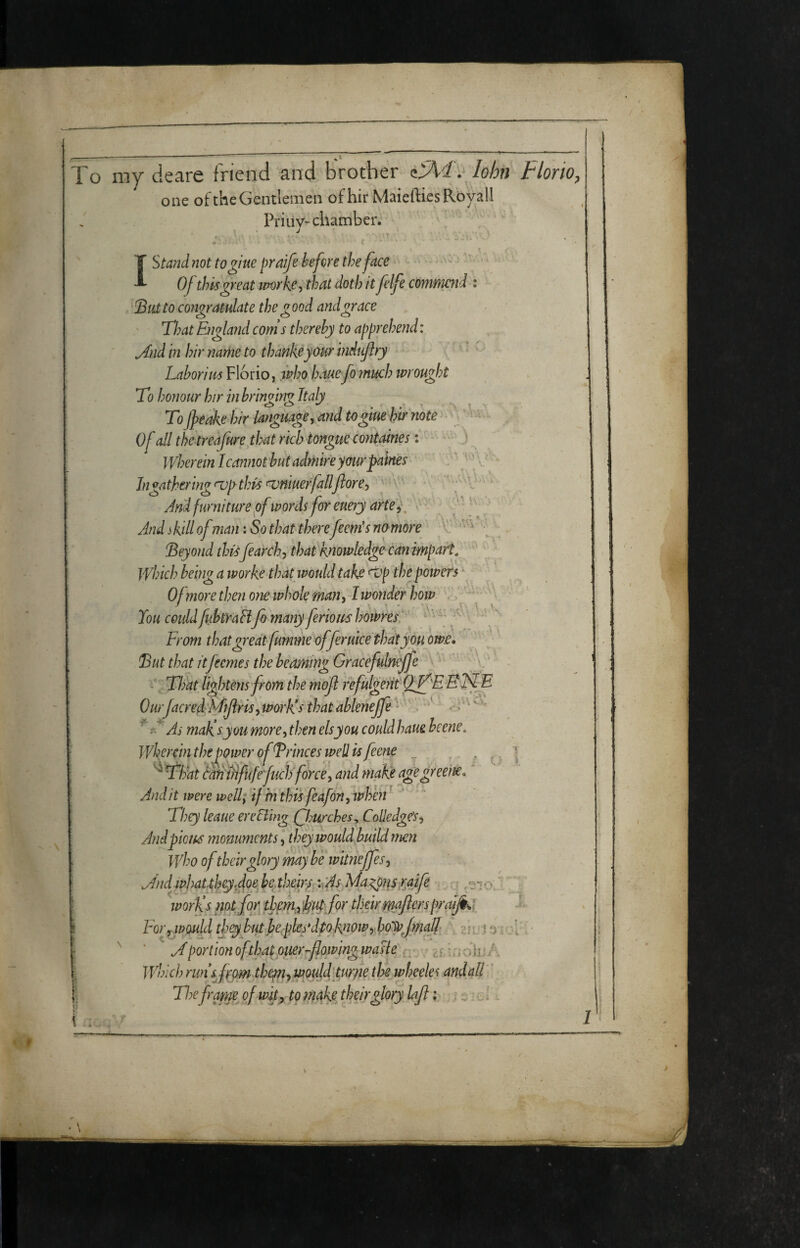 To my deare friend and brother M. Iohn Florio,
one of the Gentlemen of hir Maiesties Royall
Priuy-chamber.
I Stand not to giue praise before the face
Of this great worke, that doth it selfe commend :
But to congratulate the good and grace
That England com's thereby to apprehend:
And in hir name to thanke your industry
Laborius Florio, who haue so much wrought
To honour hir in bringing Italy
To speake hir language, and to giue hir note
Of all the treasure that rich tongue containes :
Wherein I cannot but admire your paines
In gathering vp this vniuersall store,
And furniture of words for euery arte,
And skill of man : So that there seem's no more
Beyond this search, that knowledge can impart.
Which being a worke that would take vp the powers
Of more then one whole man, I wonder how
You could substract so many serious howres
From that great summe of seruice that you owe.
But that it seemes the beaming Gracefulnesse
That lightens from the most refulgent QVEENE
Our sacred Mistris, work's that ablenesse
As mak's you more, then els you could haue beene.
Wherein the power of Princes well is seene
That can infuse such force, and make age greene.
And it were well, if in this season, when
They leaue erecting Churches, Colledges,
And pious monuments, they would build men
Who of their glory may be witnesses,
And what they doe be theirs : As Mazons raise
work's not for them, but for their masters praise.
For, would they but be pleas'd to know, how small
A portion of that ouer-flowing waste
Which run's from them, would turne the wheeles and all
The frame of wit, to make their glory last :
1